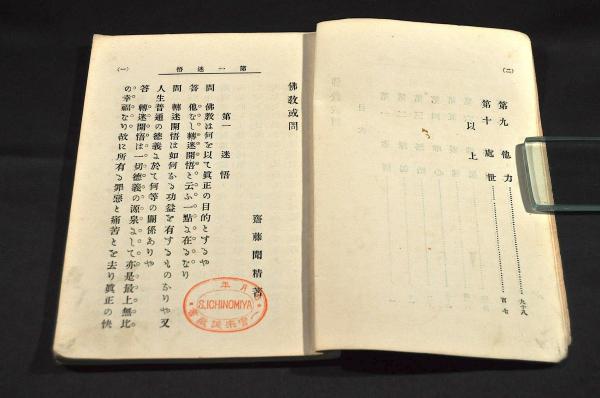 (二)
第九 他力 九十八
第十 處世 百七
以上 目
(一)
第一 迷悟
佛教或問
齋藤聞精著
第一 迷悟
問 佛教は何を以て眞正の目的とするや
答 他なし轉迷開悟と云ふ一點に在るなり
問 轉迷開悟は如何なる功益を有するものなりや又
人生普通の德義に於て何等の關係ありや
答 轉迷開悟は一切德義の源泉にして亦是最上無比
の幸福なり故に所有る罪惡と痛苦とを去り眞正の快
年 月
S.ICHINOMIYA